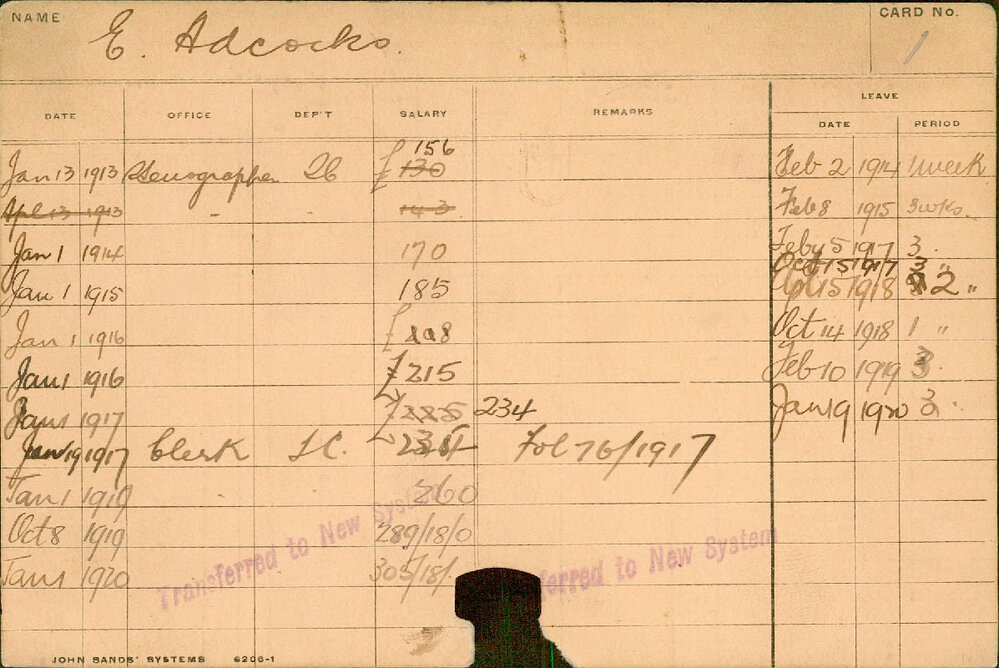 NAME E. Adcocks. CARD No. 1
LEAVE
DATE OFFICE DEP'T SALARY REMARKS DATE PERIOD
£ 156
Jan 13 1913 Stenographer £ 130 Feb 2 1914 1 week
Apl 13 1913 - 143 Feb 8 1915 3 wks.
Jan 1 1914 170 Feby 5 1917 3 "
Oct 15 1917 3 "
Jan 1 1915 185 Apl 15 1918 2 "
Jan 1 1916 £ Oct 14 1918 1 "
Jan 1 1916 £ 215 Feb 10 1919 3 "
Jan 1 1917 £ 225 234 Jan 19 1920 3 "
Jan 19 1917 Clerk Fol 76/1917
Jan 1 1919 260
Oct 8 1919 289/18/0
Jan 1 1920 305/18/-
Transferred to New System
ferred to New System
JOHN SANDS' SYSTEMS 6206-1